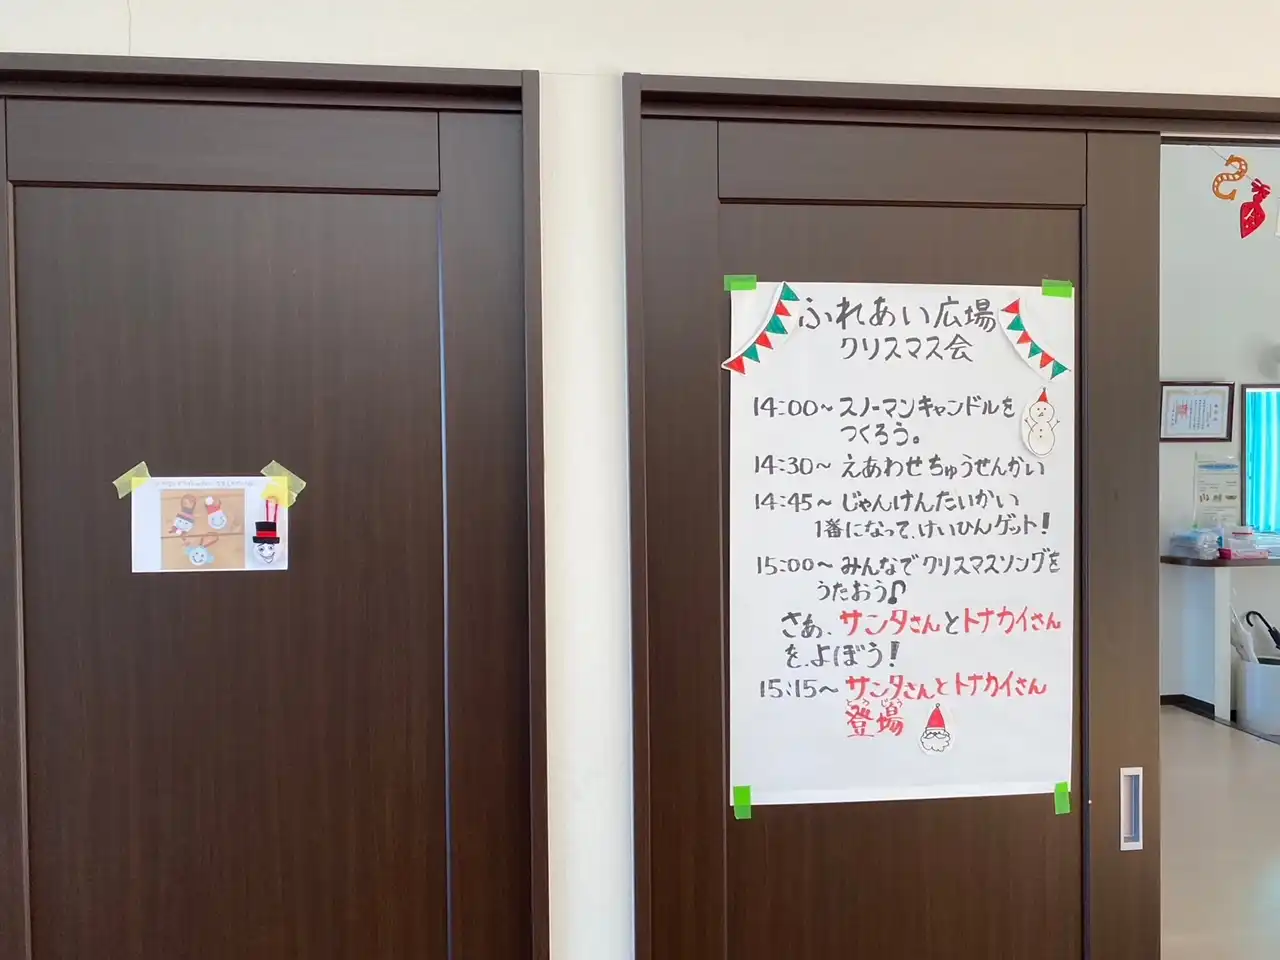 ふれあい広場
クリスマス会
14:00～スノーマンキャンドルを
つくろう。
14:30～えあわせちゅうせんかい
14:45～じゃんけんたいかい
1番になって、けいひんゲット！
15:00～みんなでクリスマスソングを
うたおう♪
さあ、サンタさんとトナカイさん
を、よぼう！
15:15～サンタさんとトナカイさん
とうじょう
登場
S